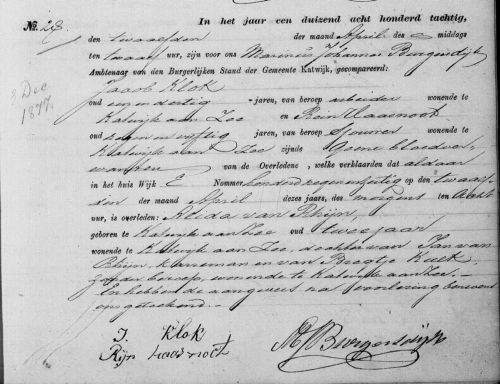 No. 28
In het jaar een duizend acht honderd tachtig,
den twaalfden der maand April des middags
ten twaalf uur, zijn voor ons Marinus Johannes Burgersdijk
Ambtenaag van den Burgerlijken Stand der Gemeente Katwijk, gecompareerd:
Jacob Klok
3 Dec
1877
oud een en dertig jaren, van beroep arbeider wonende te
Katwijk aan Zee en Rein Haasnoot
oud en vijftig jaren, van beroep wonende te
Katwijk aan Zee zijnde Geene bloedver-
wanten van de Overledene, welke verklaarden dat aldaar
in het huis Wijk E Nommer honderd op den twaalf-
den der maand April dezes jaars, des morgens ten Acht
uur, is overleden: Alida van Rhijn,
geboren te Katwijk aan Zee oud twee jaar
wonende te Katwijk aan Zee, dochter van Jan van
Rhijn, en van Kuck
zonder beroep, wonende te Katwijk aan Zee.—
En hebben de aangevers na voorlezing benevens
ons geteekend.
J. Klok
Rijn haasnoot
MJBurgersdijk